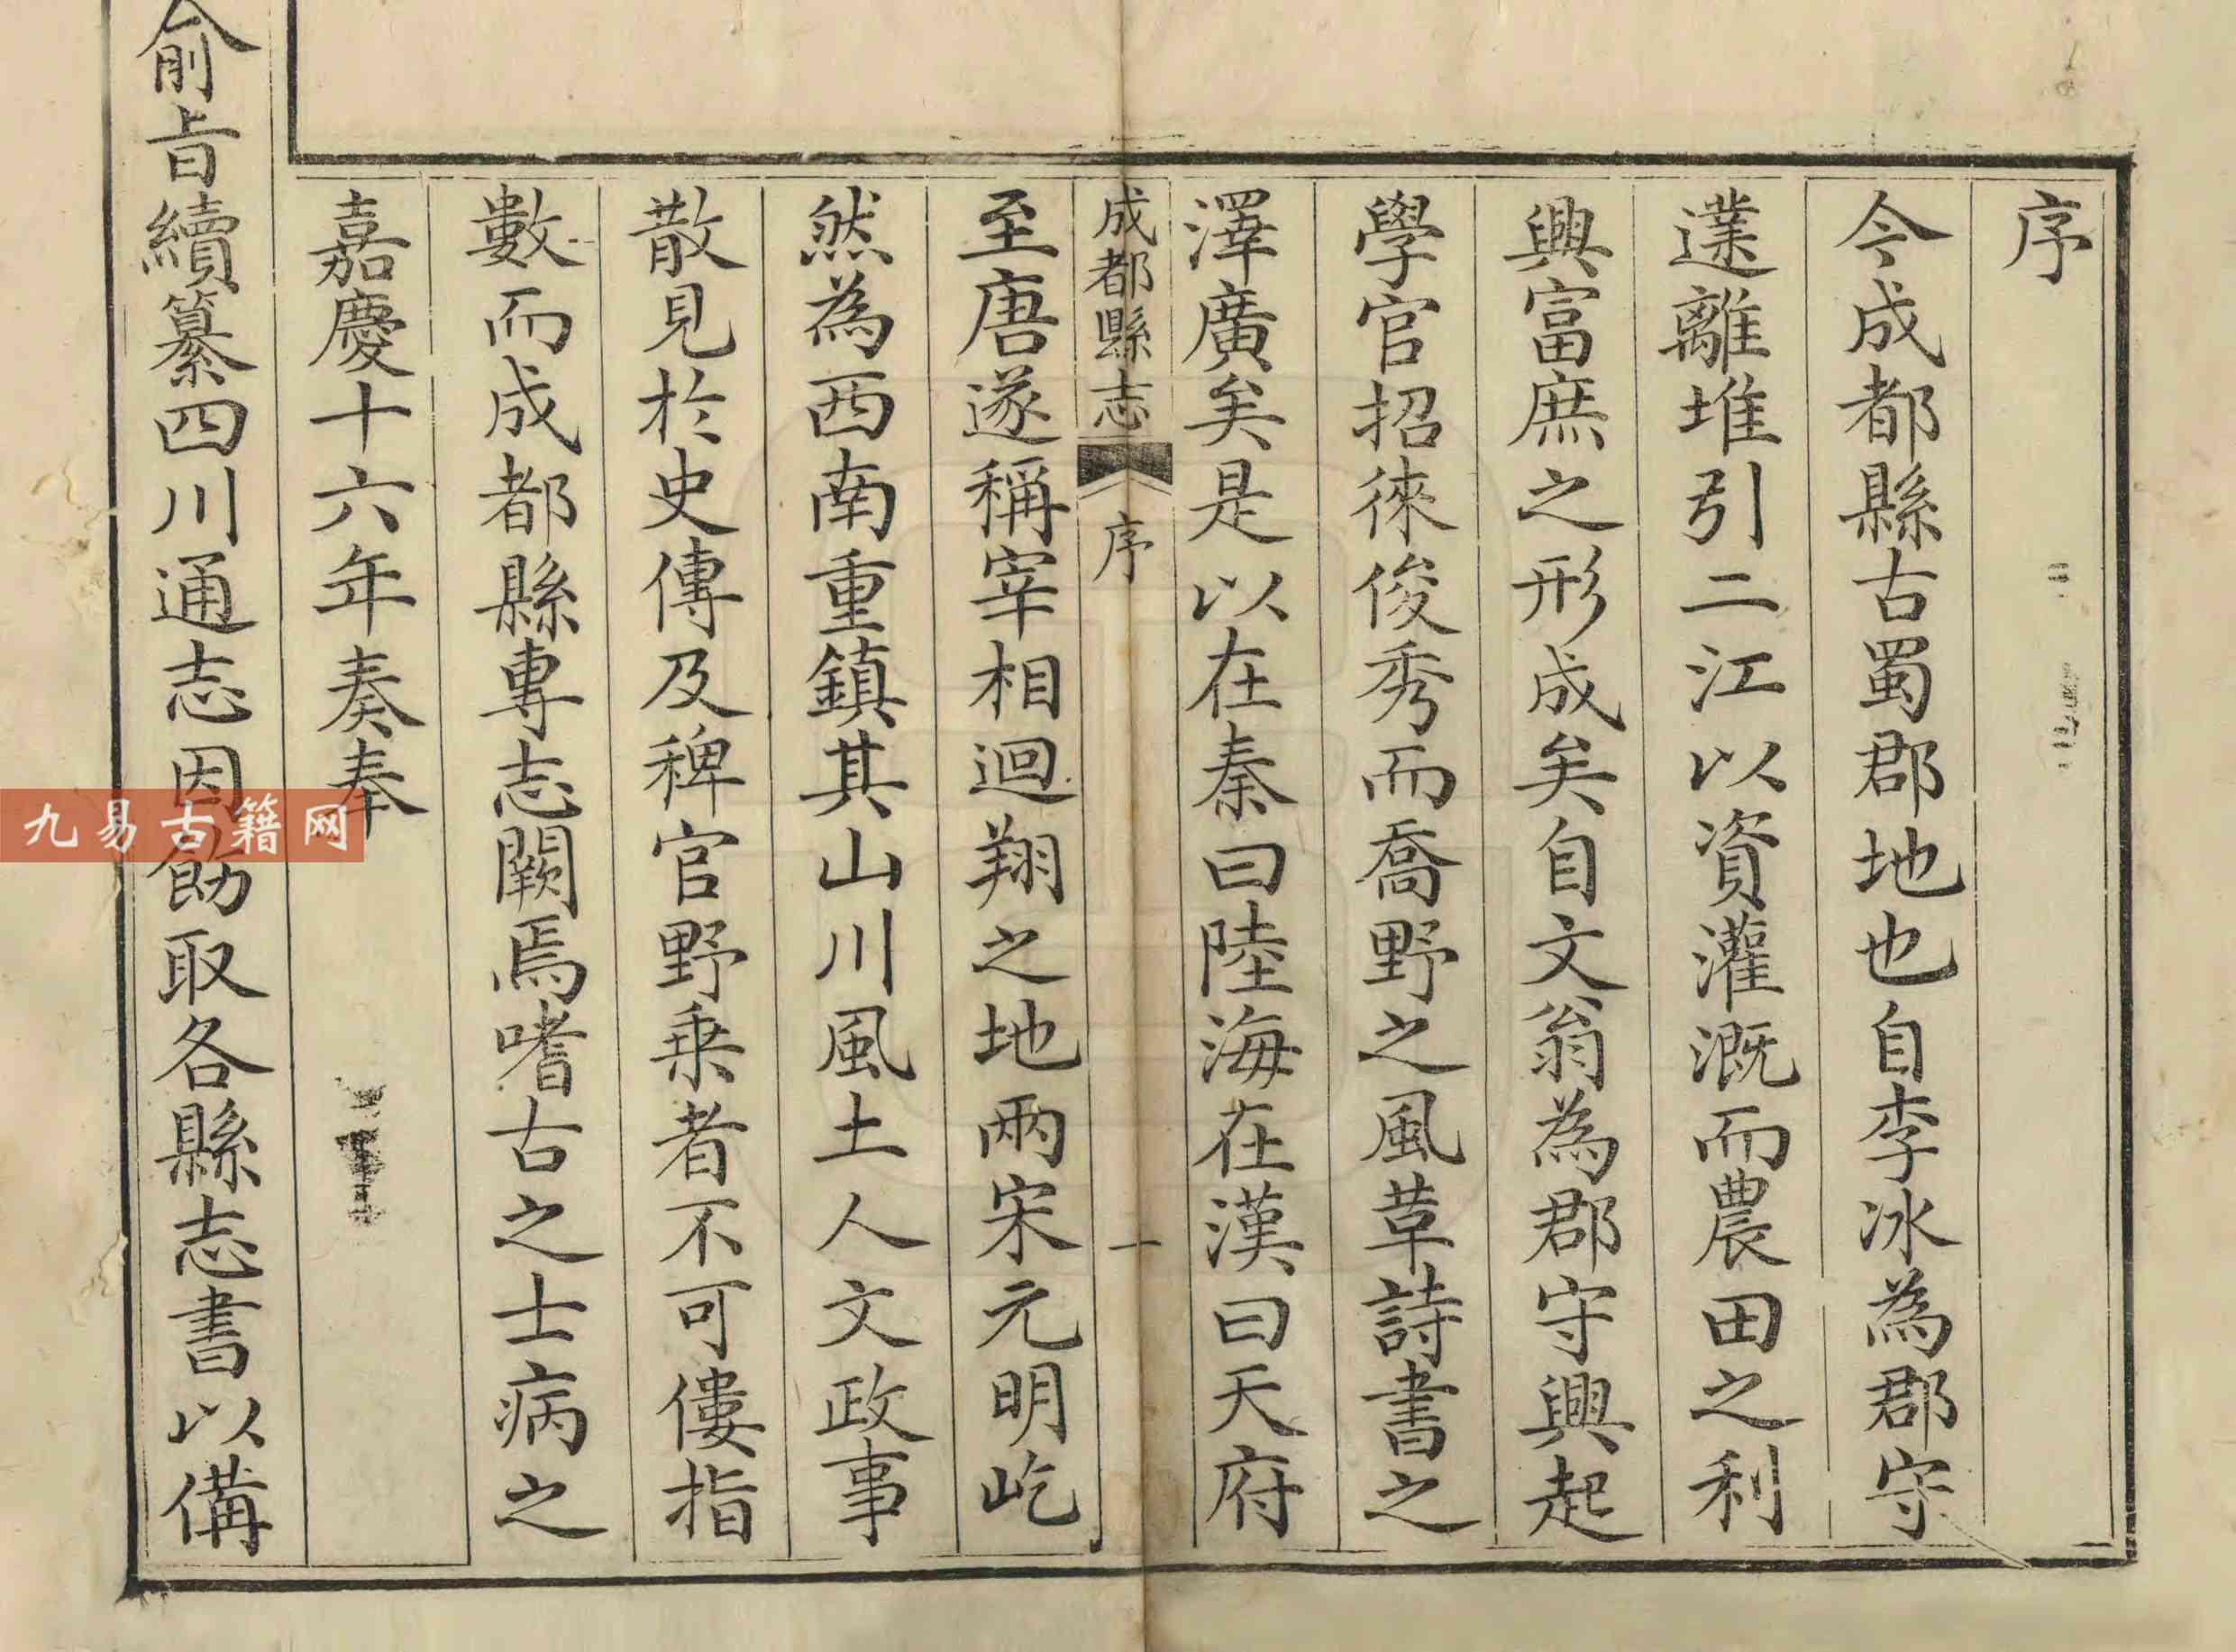 序
今成都縣古蜀郡地也自李冰為郡守
離堆引二江以資灌溉而農田之利
興富庶之形成矣自文翁為郡守興起
學官招徠俊秀而喬野之風草詩書之
澤廣矣是以在秦曰陸海在漢曰天府
成都縣志 序 一
至唐遂稱宰相迴翔之地兩宋元明屹
然為西南重鎮其山川風土人文政事
散見於史傳及稗官野乗者不可僂指
數而成都縣專志闕焉嗜古之士病之
嘉慶十六年奏奉
俞旨續纂四川通志因飭取各縣志書以備
九易古籍网